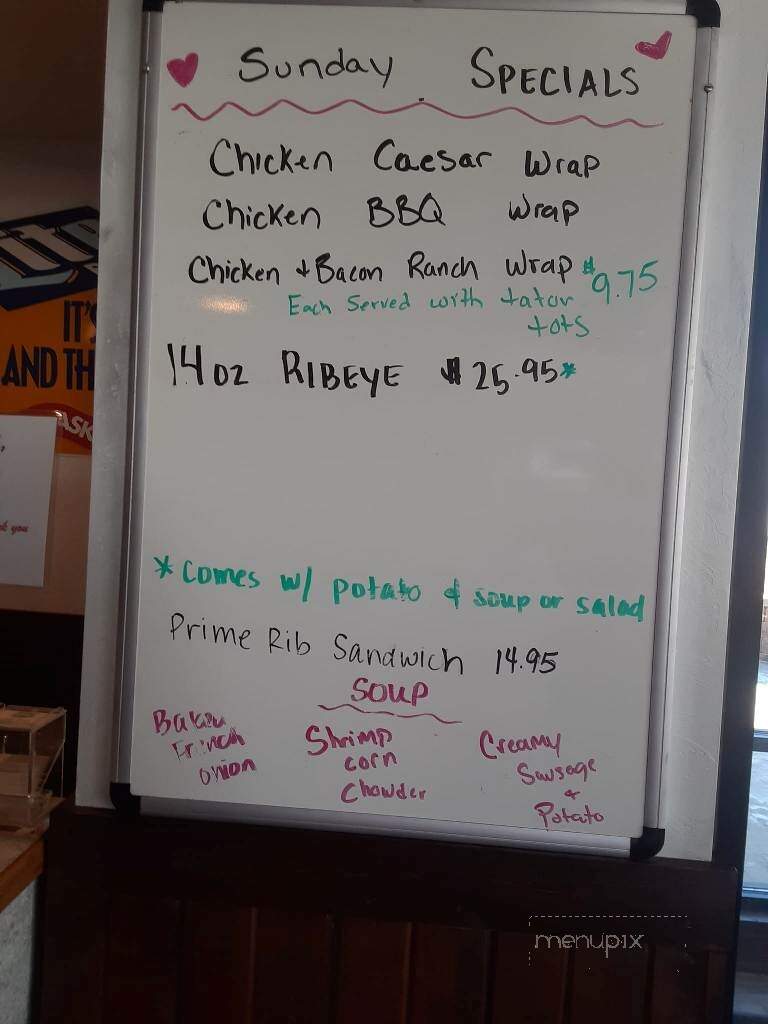 Sunday SPECIALS
Chicken Caesar Wrap
Chicken BBQ Wrap
Chicken & Bacon Ranch Wrap $9.75
Each Served with tator
tots
14oz RIBEYE $25.95*
*Comes w/ potato & soup or salad
Prime Rib Sandwich 14.95
SOUP
Baked
French
onion
Shrimp
corn
Chowder
Creamy
Sausage
&
Potato
IT'S
AND TH
ASK
menupix